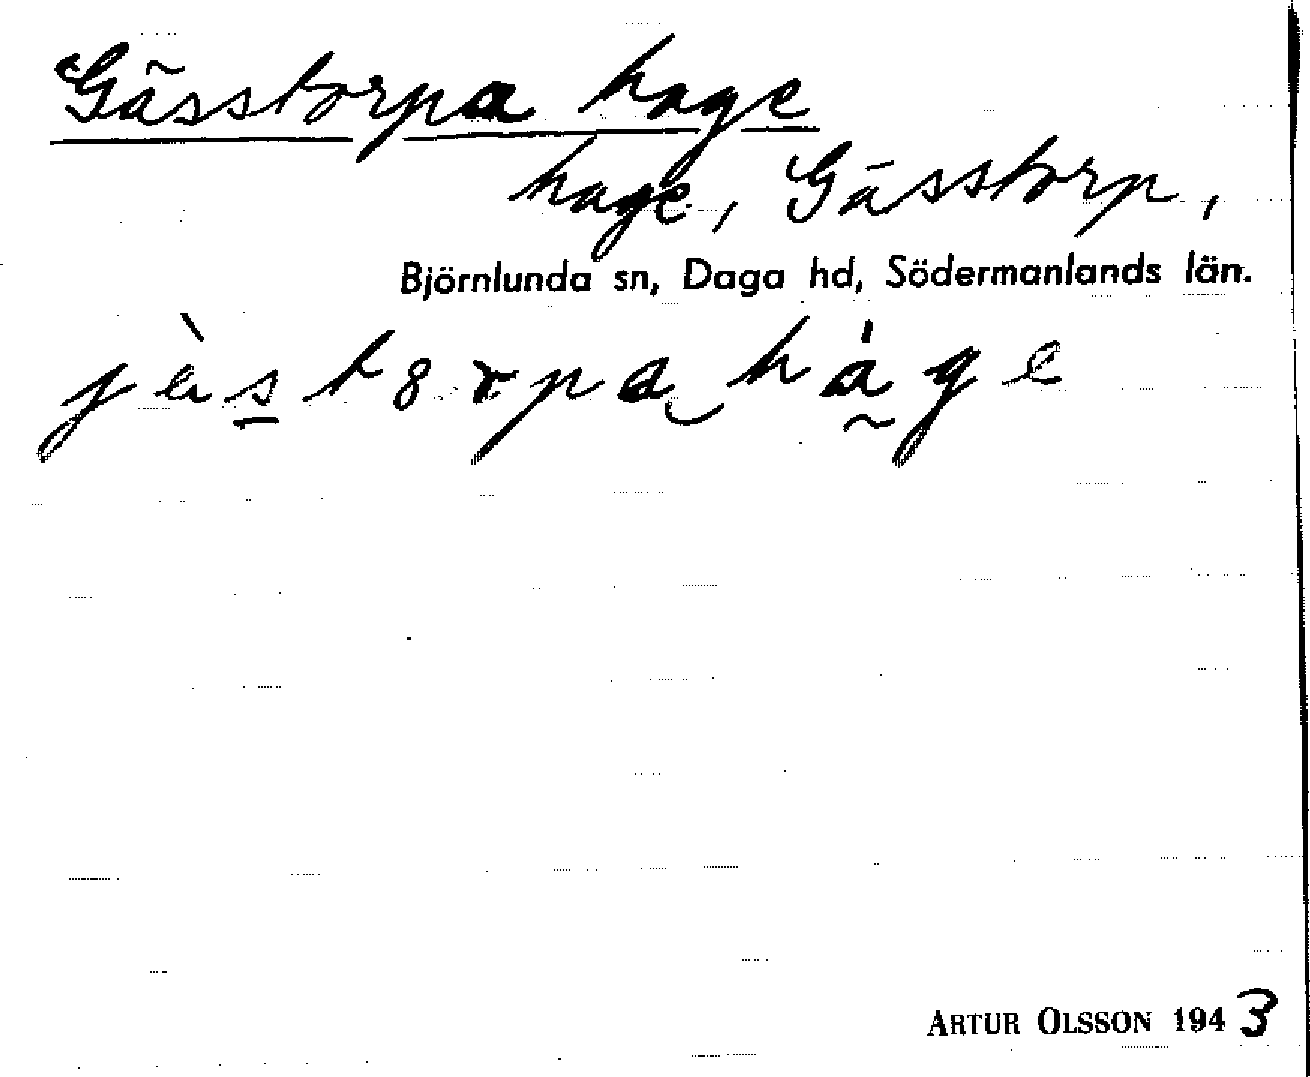 Gässtorpa hage
hage, Gässtorp,
Björnlunda sn, Daga hd, Södermanlands län.
ARTUR OLSSON 1943